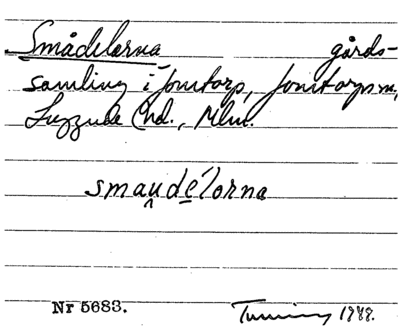 Smådelarna gårds-
samling i Jonstorp, Jonstorps sn,
Luggude hd., Mlm.
smau̯de̱ʹlorna
Nr 5683.
1988.